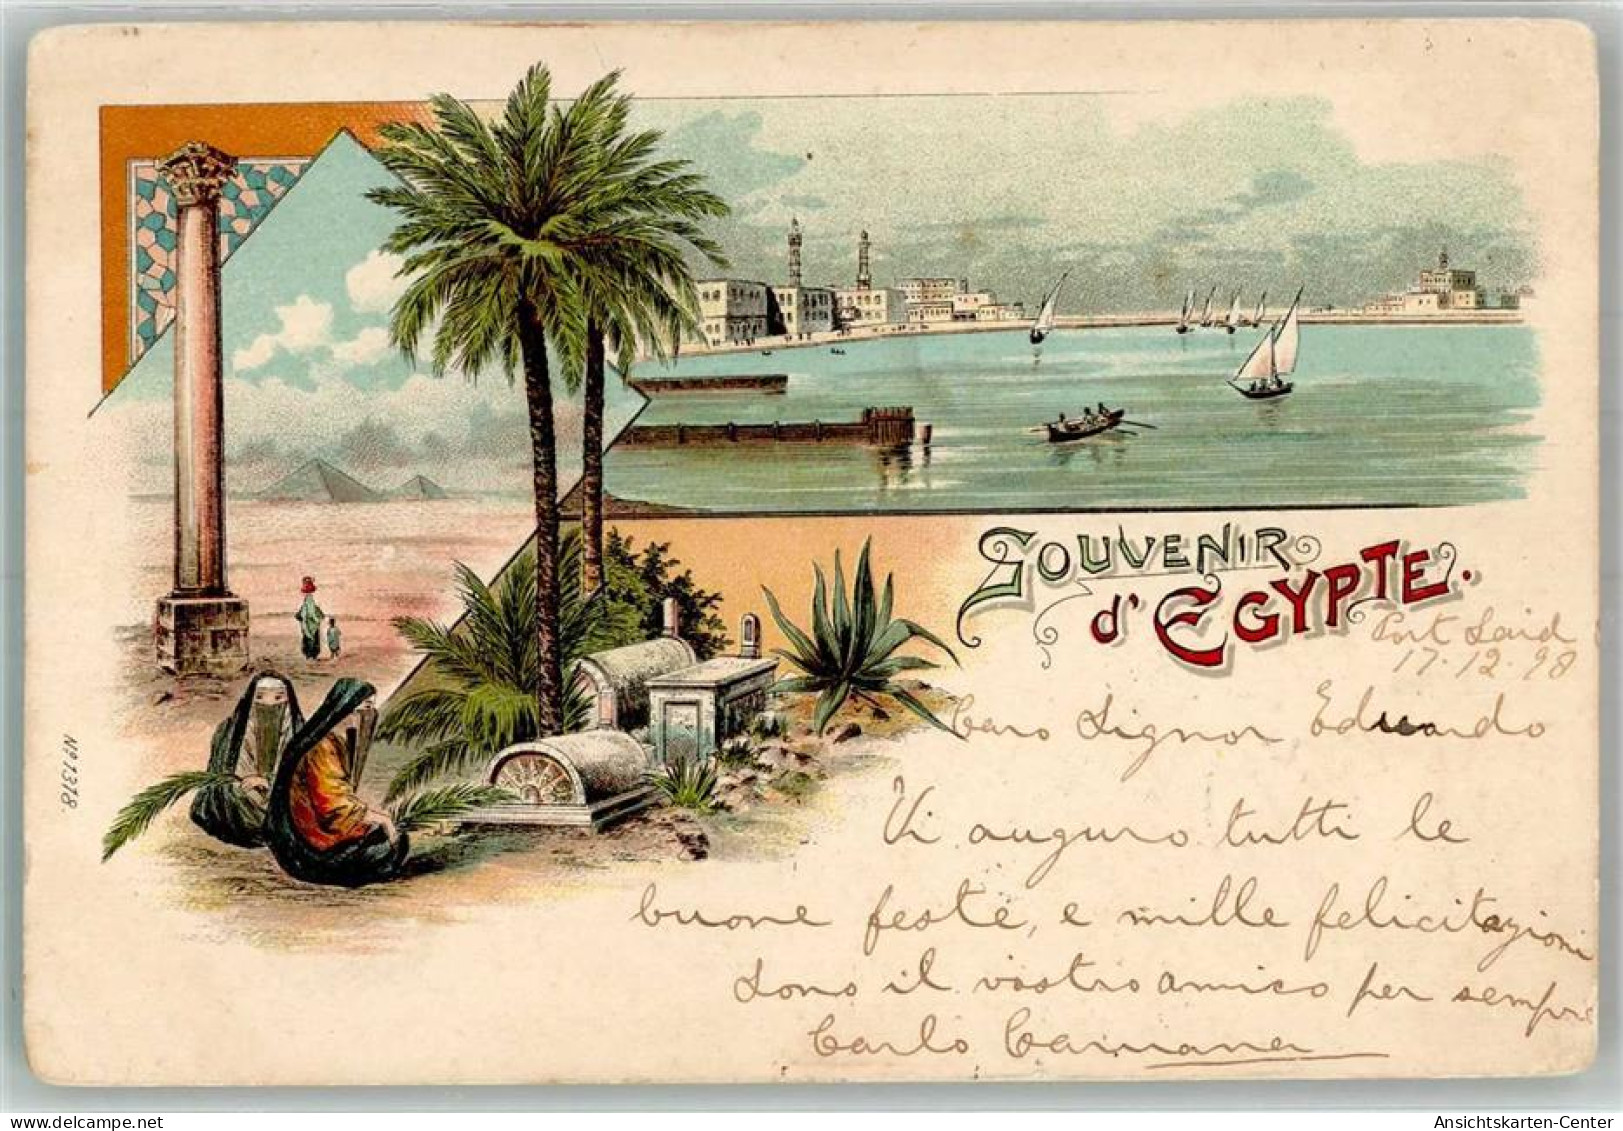 SOUVENIR
d'EGYPTE.
Port Said
17.12.98
Caro Signor Eduardo
Vi auguro tutti le
buone feste, e mille felicitazioni
Sono il vostro amico per sempre
Carlo
No 7318.
Ansichtskarten-Center